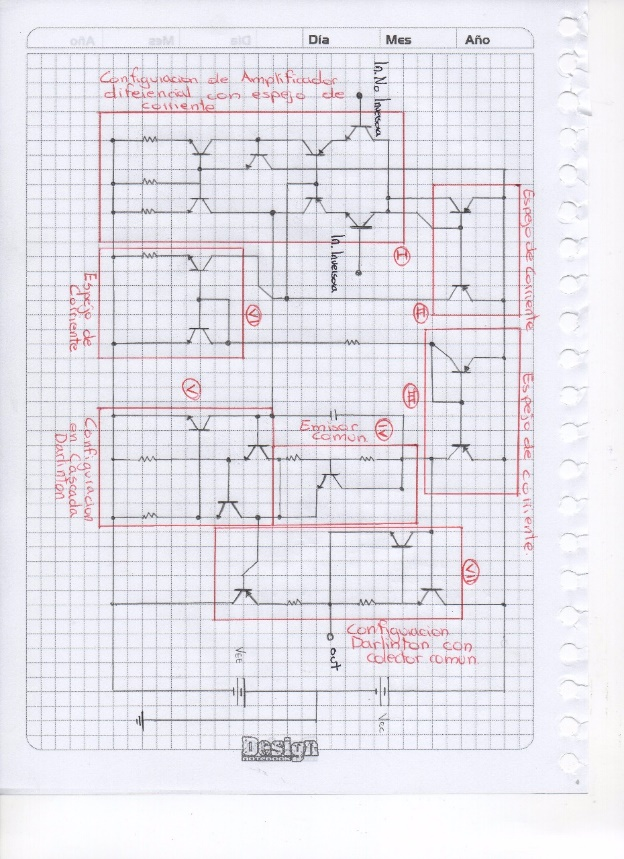 Día
Mes
Año
Configuracion de Amplificador
diferencial con espejo de
corriente
In. No Inversora
In. Inversora
I
Espejo de Corriente
II
Espejo de
Corriente
VI
Espejo de corriente
III
V
Emisor
común
IV
Configuracion
en Cascada
Darlinton
VII
Configuracion
Darlinton con
colector comun
out
VEE
Vcc
Design